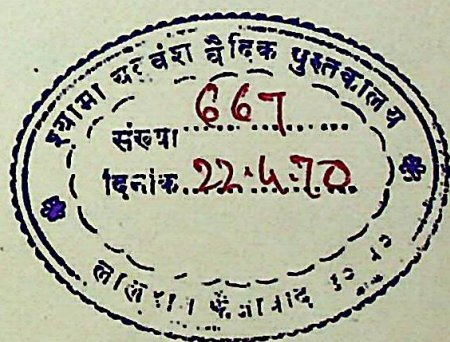 श्यामा यदुवंश वैदिक पुस्तकालय
संख्या 667
दिनांक 22.4.70